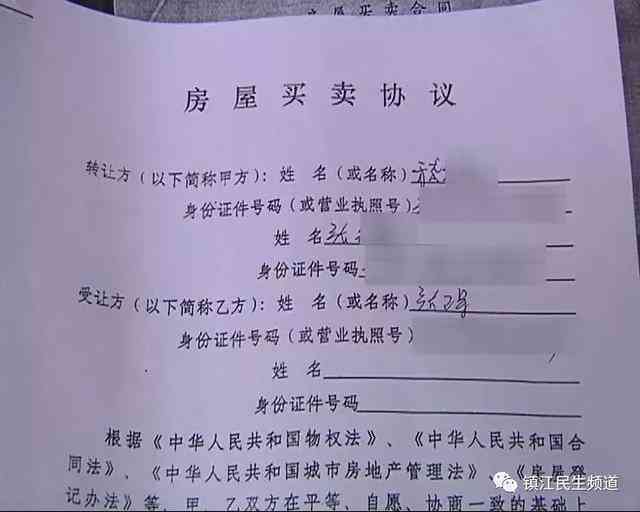 房屋买卖合同
房屋买卖协议
转让方(以下简称甲方):姓 名(或名称)
身份证件号码(或营业执照号)
姓 名 张
身份证件号码
受让方(以下简称乙方):姓 名(或名称)张
身份证件号码(或营业执照号)
姓 名
身份证件号码
根据《中华人民共和国物权法》、《中华人民共和国合
同法》、《中华人民共和国城市房地产管理法》、《房屋登
记办法》等,甲、乙双方在平等、自愿、协商一致的基础上
镇江民生频道